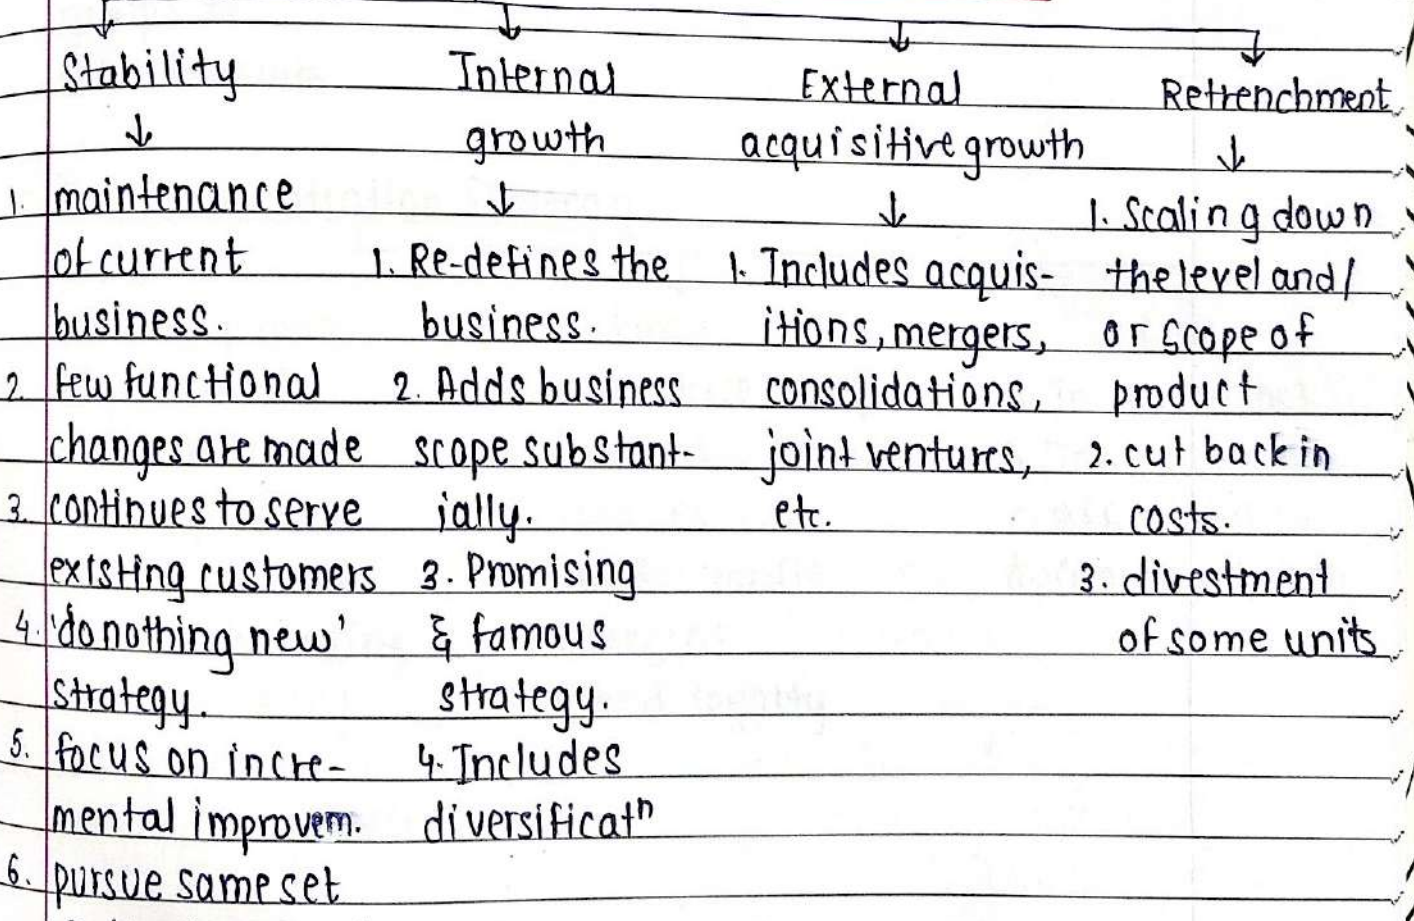 Stability
↓
1. maintenance
of current
business.
2. few functional
changes are made
3. continues to serve
existing customers
4. 'do nothing new'
strategy.
5. focus on incre-
mental improvem.
6. pursue same set
Internal
growth
↓
1. Re-defines the
business.
2. Adds business
scope substant-
ially.
3. Promising
& famous
strategy.
4. Includes
diversificatⁿ
External
acquisitive growth
↓
1. Includes acquis-
itions, mergers,
consolidations,
joint ventures,
etc.
Retrenchment
↓
1. Scaling down
the level and/
or scope of
product
2. cut back in
costs.
3. divestment
of some units